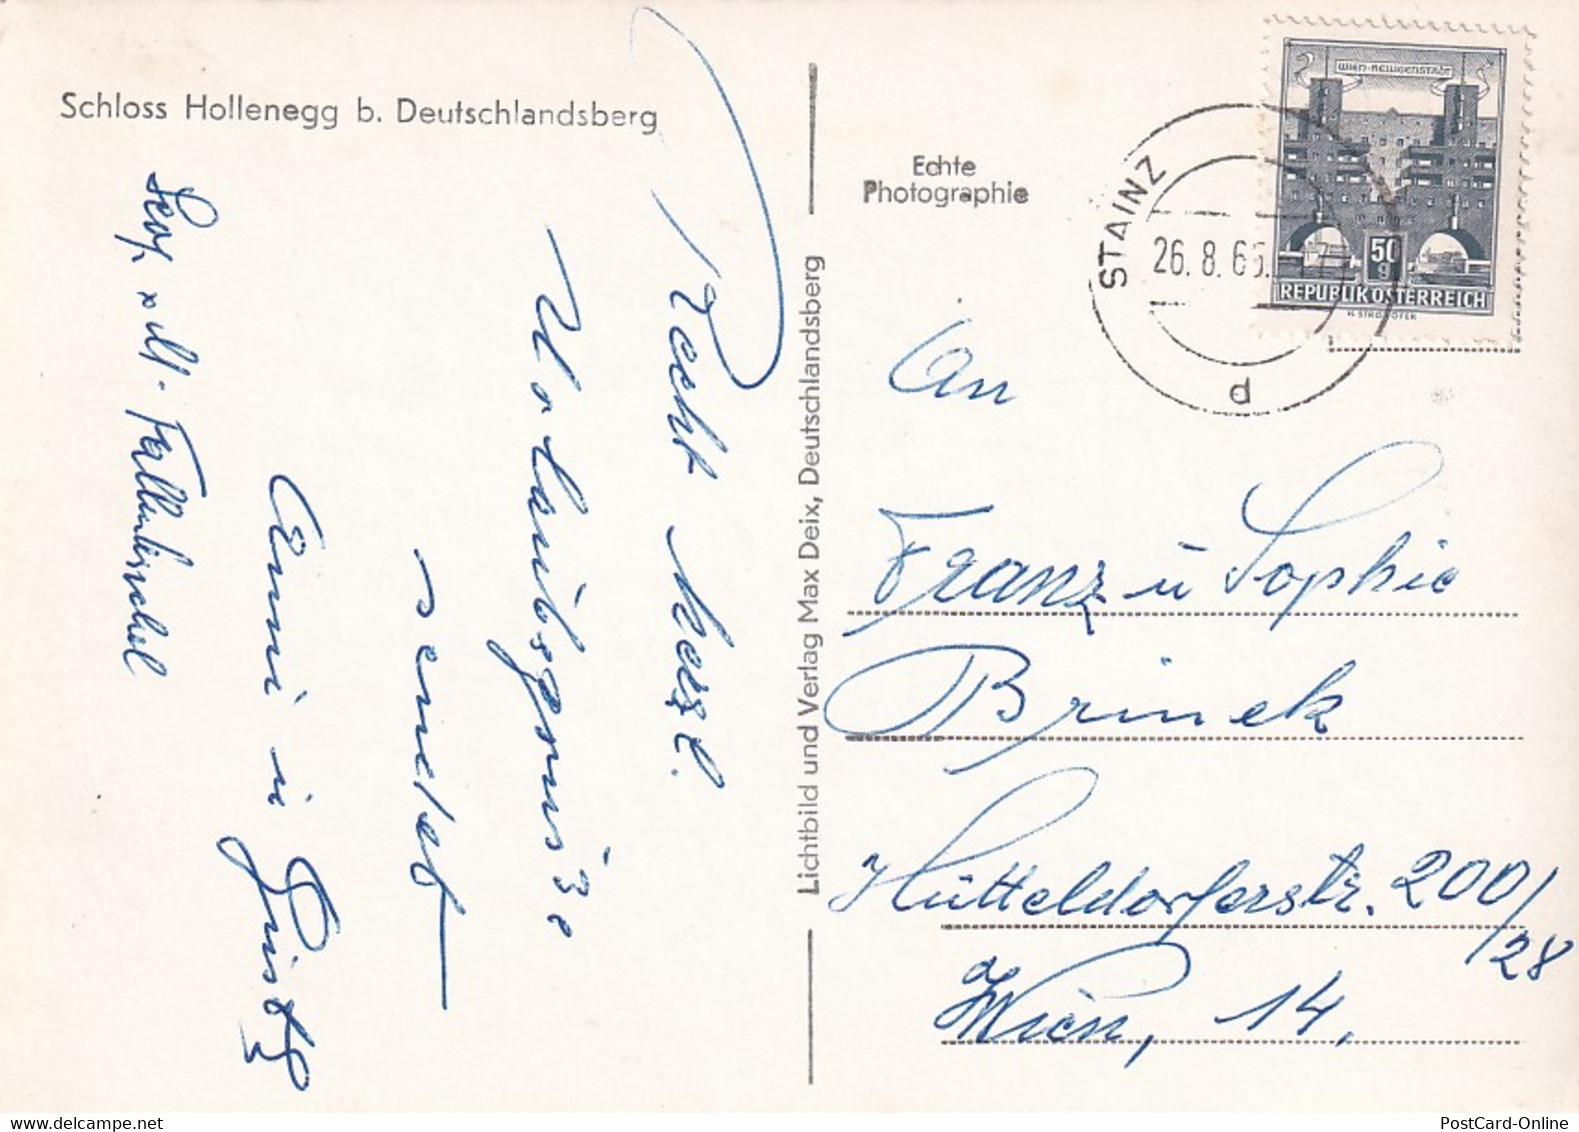 Schloss Hollenegg b. Deutschlandsberg
Recht herzl.
Urlaubsgrüsse
sendet
Anni u
Leop. M.
Lichtbild und Verlag Max Deix, Deutschlandsberg
Echte
Photographie
STAINZ
26.8.65
d
WIEN-HEILIGENSTADT
50
g
REPUBLIK ÖSTERREICH
An
Franz u Sophie
Brinek
Hütteldorferstr. 200/
28
Wien, 14.
PostCard-Online